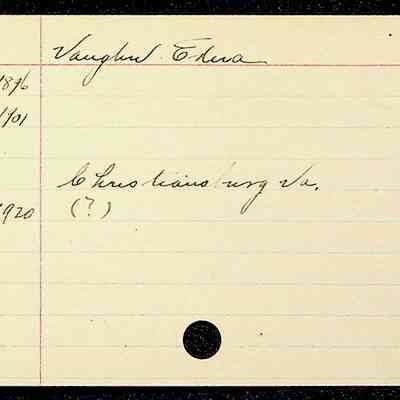 Vaughn Edna
1896
1901
Christiansburg Va.
1920 (?)